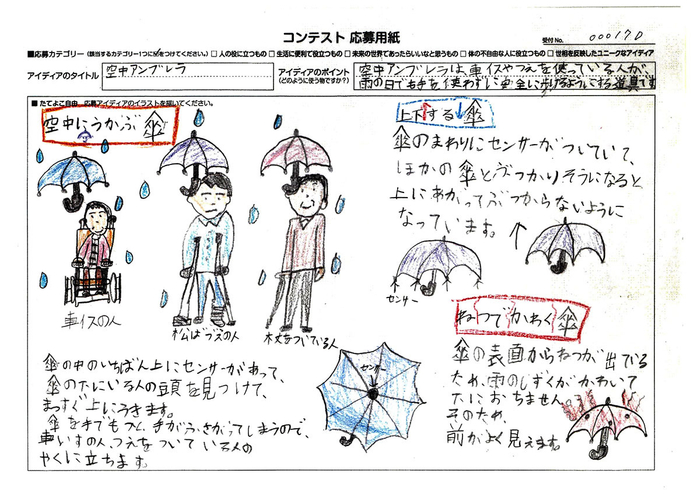 コンテスト 応募用紙
受付 No. 000170
■応募カテゴリー（該当するカテゴリー1つに○をつけてください。）□ 人の役に立つもの □ 生活に便利で役立つもの □ 未来の世界であったらいいなと思うもの □ 体の不自由な人に役立つもの □ 世相を反映したユニークなアイディア
アイディアのタイトル
空中アンブレラ
アイディアのポイント
（どのように使う物ですか？）
空中アンブレラは、車イスやつえを使っている人が、
雨の日でも手を使わずに安全に行けるようにする道具です
■ たてよこ自由。応募アイディアのイラストを描いてください。
空中にうかぶ傘
車イスの人
松ばづえの人
杖をついている人
傘の中のいちばん上にセンサーがあって、
傘の下にいる人の頭を見つけて、
まっすぐ上にうきます。
傘を手でもつと、手がふさがってしまうので、
車いすの人、つえをついている人の
やくに立ちます。
上下する傘
傘のまわりにセンサーがついていて、
ほかの傘とぶつかりそうになると
上にあがってぶつからないように
なっています。
センサー
センサー
ねつでかわく傘
傘の表面からねつが出ている
ため、雨のしずくがかわいて
下におちません。
そのため、
前がよく見えます。